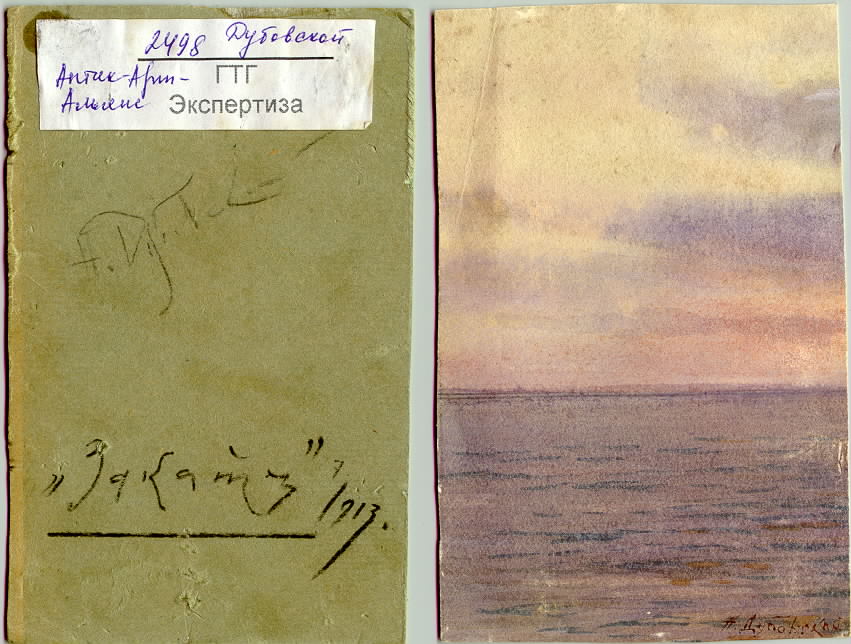 2498 Дубовской
Антик-Арт-
Альянс
ГТГ
Экспертиза
Н. Дубовской
„Закатъ" 1913.
Н. Дубовской